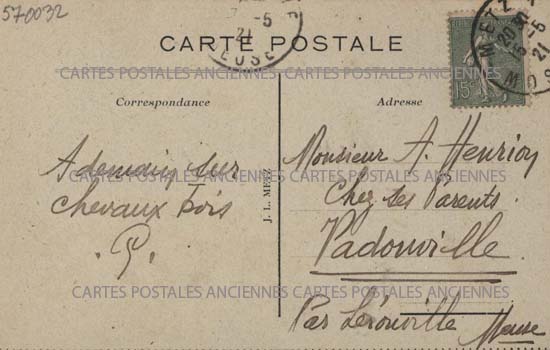 570032
CARTE POSTALE
CARTES POSTALES ANCIENNES CARTES POSTALES ANCIENNES
Correspondance
A demain sur
chevaux bois
P.
J. L. METZ
Adresse
Monsieur A. Henrion
Chez ses Parents.
Vadonville
Par Lérouville
Meuse
CARTES POSTALES ANCIENNES CARTES POSTALES ANCIENNES
CARTES POSTALES ANCIENNES CARTES POSTALES ANCIENNES
-5
21
EUSE
METZ
20
5-5
21
MO
15c